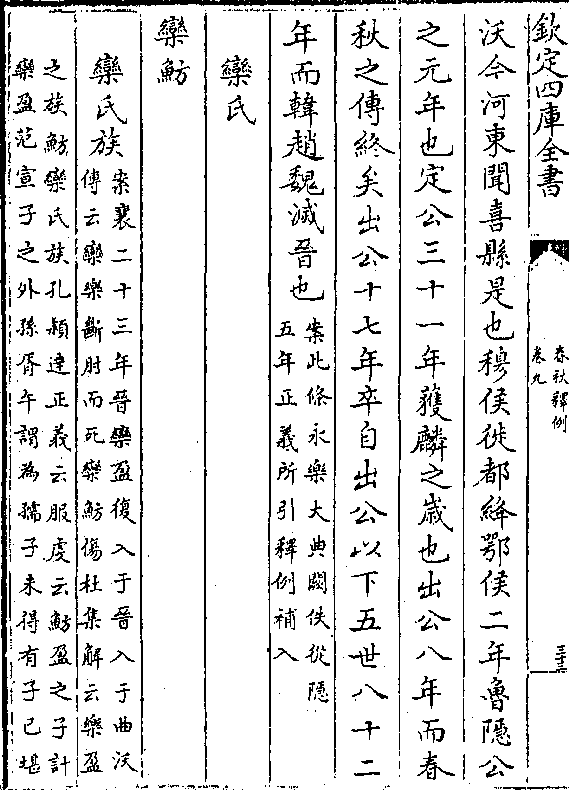 欽定四庫全書
春秋釋例
卷九
三十三
沃今河東聞喜縣是也穆侯徙都絳鄂侯二年魯隱公
之元年也定公三十一年獲麟之歲也出公八年而春
秋之傳終矣出公十七年卒自出公以下五世八十二
年而韓趙魏滅晉也
案此條永樂大典闕佚從隱
五年正義所引釋例補入
欒氏
欒魴
欒氏族
案襄二十三年晉欒盈復入于晉入于曲沃
傳云欒樂斷肘而死欒魴傷杜集解云欒盈
之族魴欒氏族孔穎達正義云服虔云魴盈之子計
欒盈范宣子之外孫胥午謂為孺子未得有子已堪